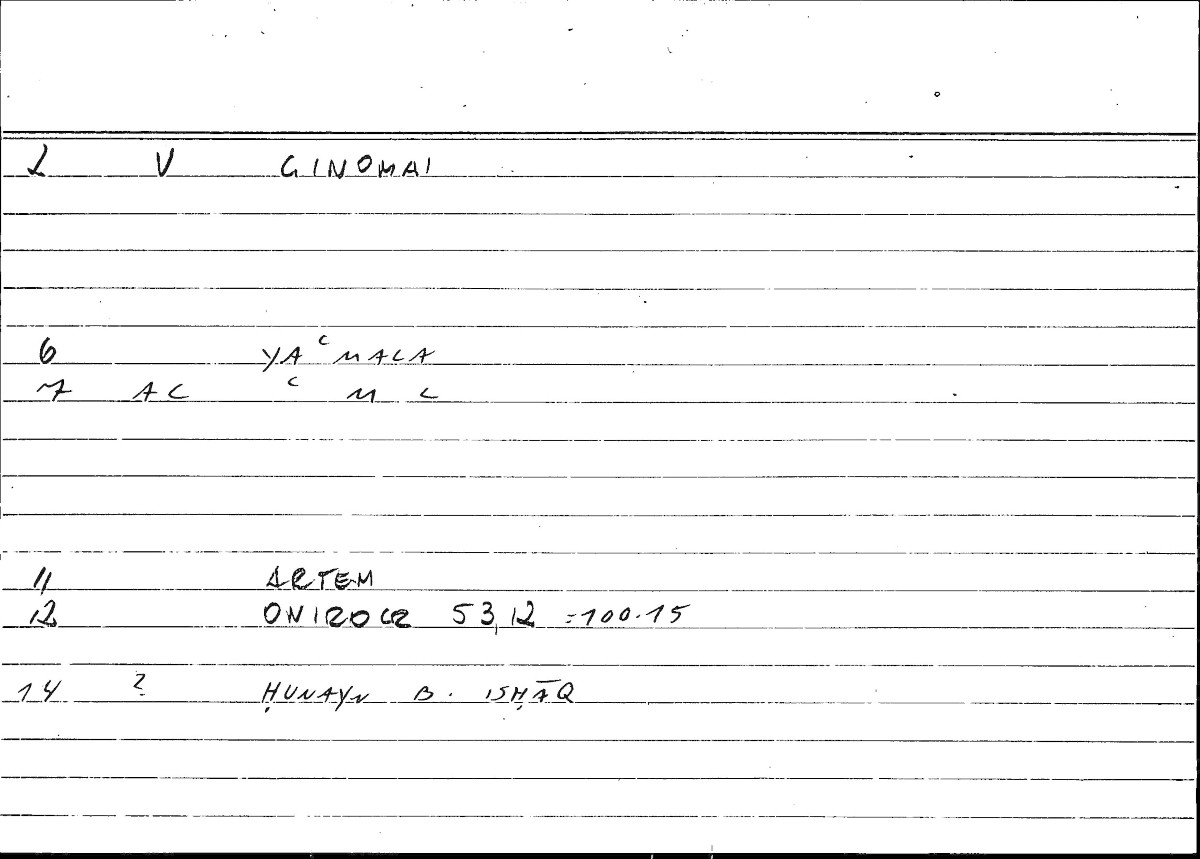 2 V GINOMAI
6 YAᶜMALA
7 AC ᶜ M L
11 ARTEM
12 ONIROCR 53,12 =100.15
14 ? ḤUNAYN B. ISḤĀQ